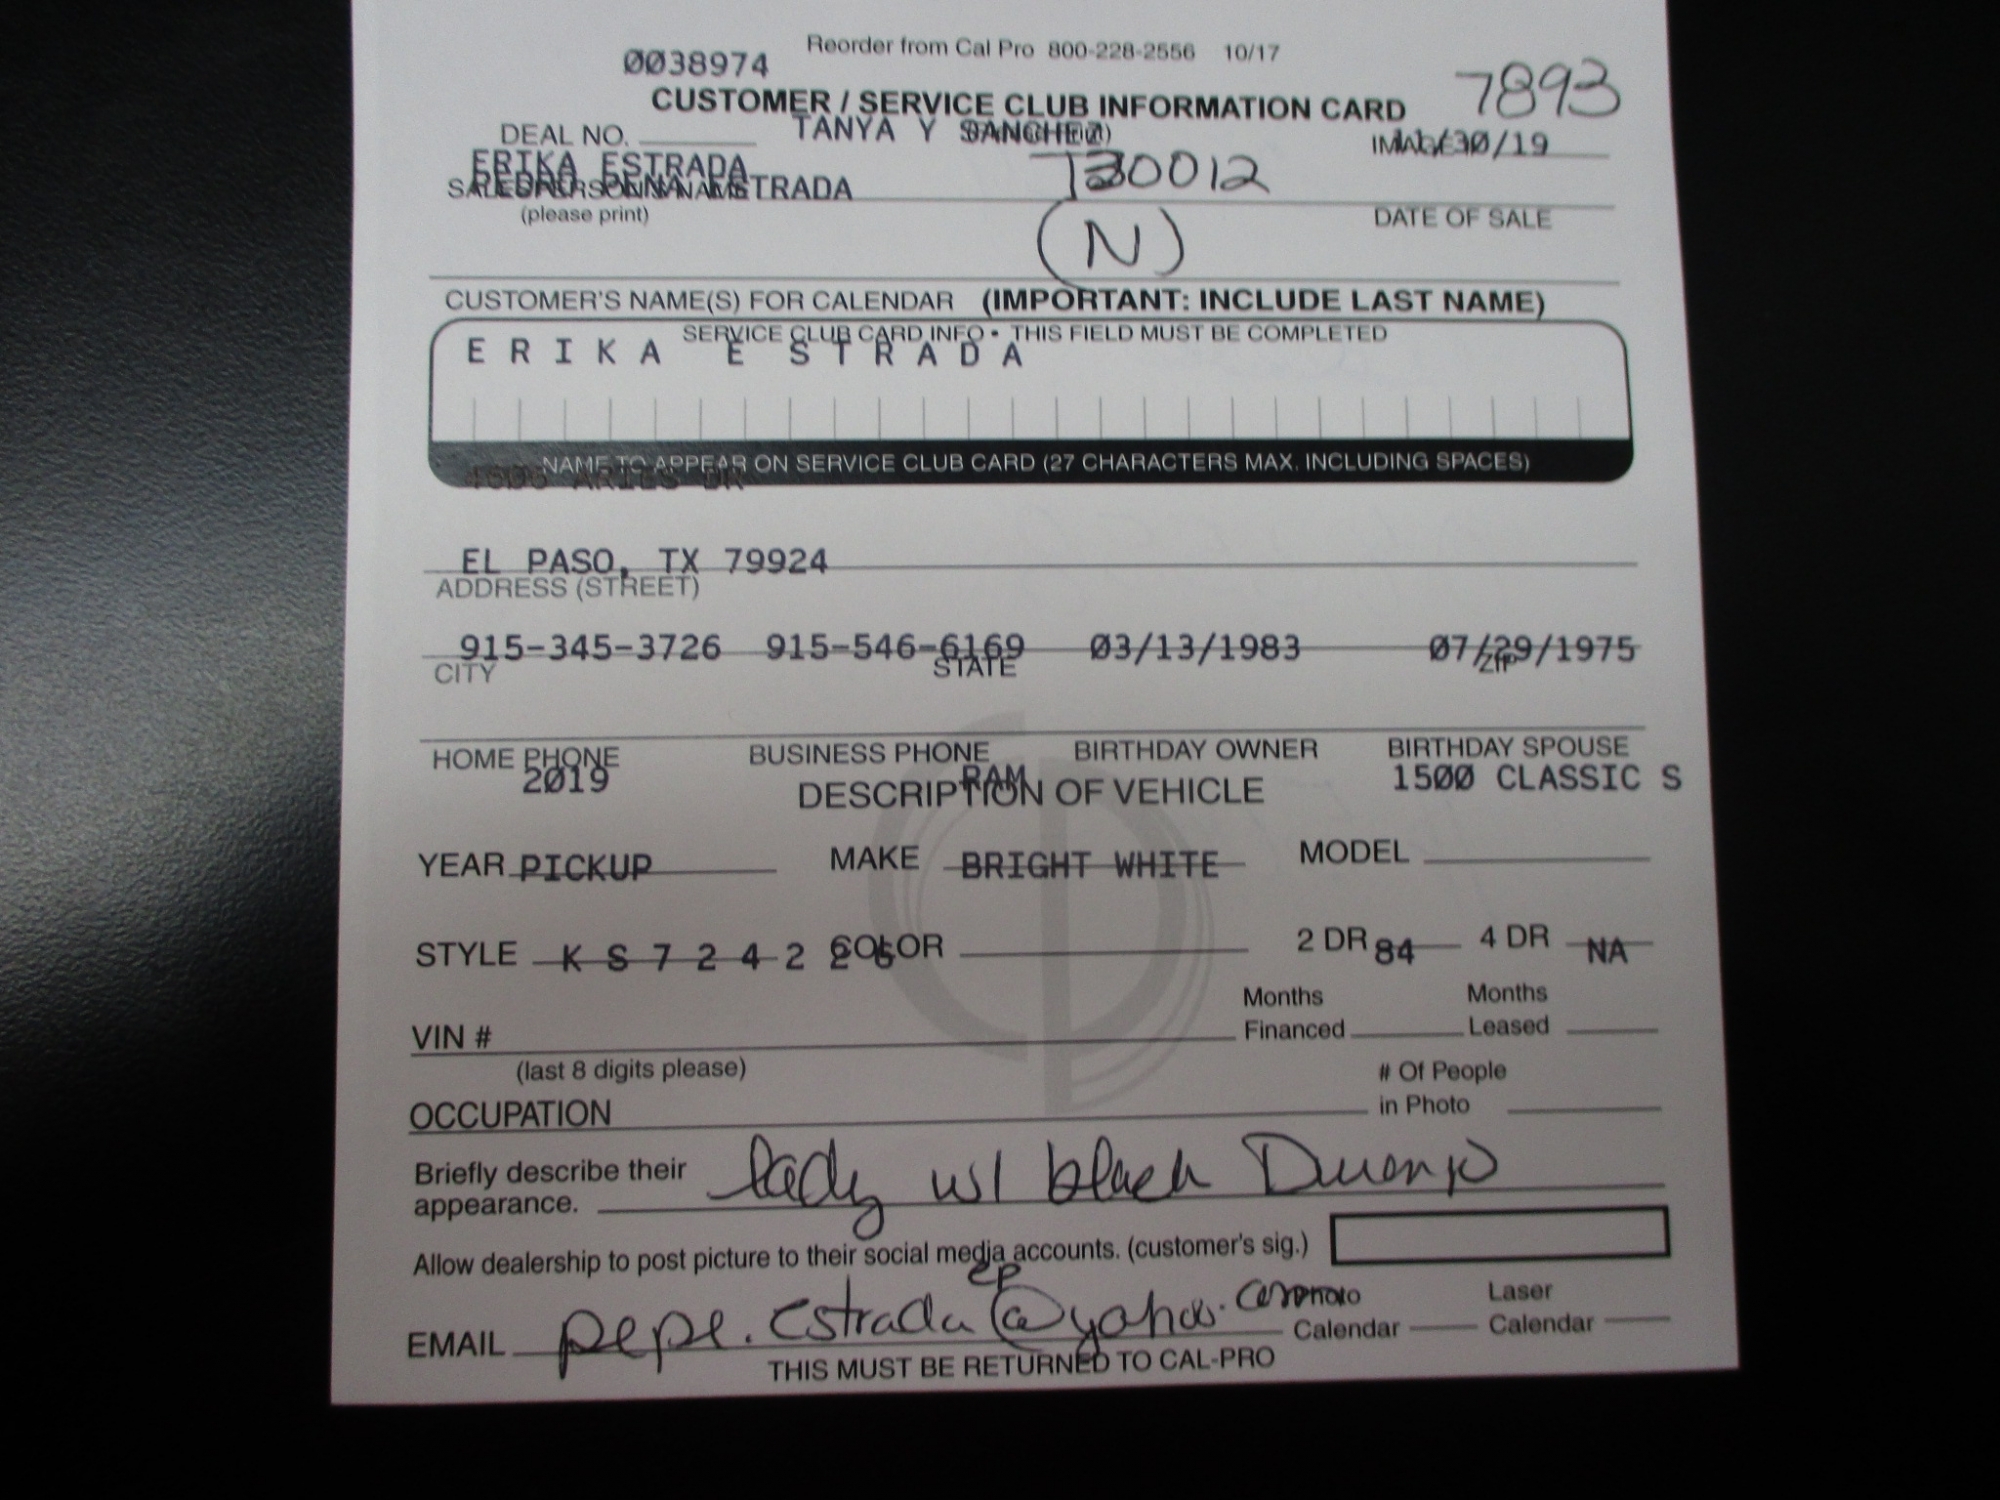 Reorder from Cal Pro 800-228-2556 10/17
0038974
CUSTOMER / SERVICE CLUB INFORMATION CARD 7893
DEAL NO. TANYA Y SANCHEZ /30/19
ERIKA ESTRADA
ESTRADA 0012
(please print) DATE OF SALE
(N)
CUSTOMER'S NAME(S) FOR CALENDAR (IMPORTANT: INCLUDE LAST NAME)
SERVICE CLUB CARD INFO • THIS FIELD MUST BE COMPLETED
ERIKA ESTRADA
NAME TO APPEAR ON SERVICE CLUB CARD (27 CHARACTERS MAX. INCLUDING SPACES)
ARIES DR
EL PASO, TX 79924
ADDRESS (STREET)
915-345-3726 915-546-6169 03/13/1983 07/29/1975
CITY STATE ZIP
HOME PHONE BUSINESS PHONE BIRTHDAY OWNER BIRTHDAY SPOUSE
2019 RAM 1500 CLASSIC S
DESCRIPTION OF VEHICLE
YEAR PICKUP MAKE BRIGHT WHITE MODEL
STYLE COLOR 2 DR 84 4 DR NA
Months Months
VIN # Financed Leased
(last 8 digits please) # Of People
OCCUPATION in Photo
Briefly describe their lady w/ black
appearance.
Allow dealership to post picture to their social media accounts. (customer's sig.)
ep
EMAIL pepe.estrada@yahoo.com Photo Laser
Calendar Calendar
THIS MUST BE RETURNED TO CAL-PRO